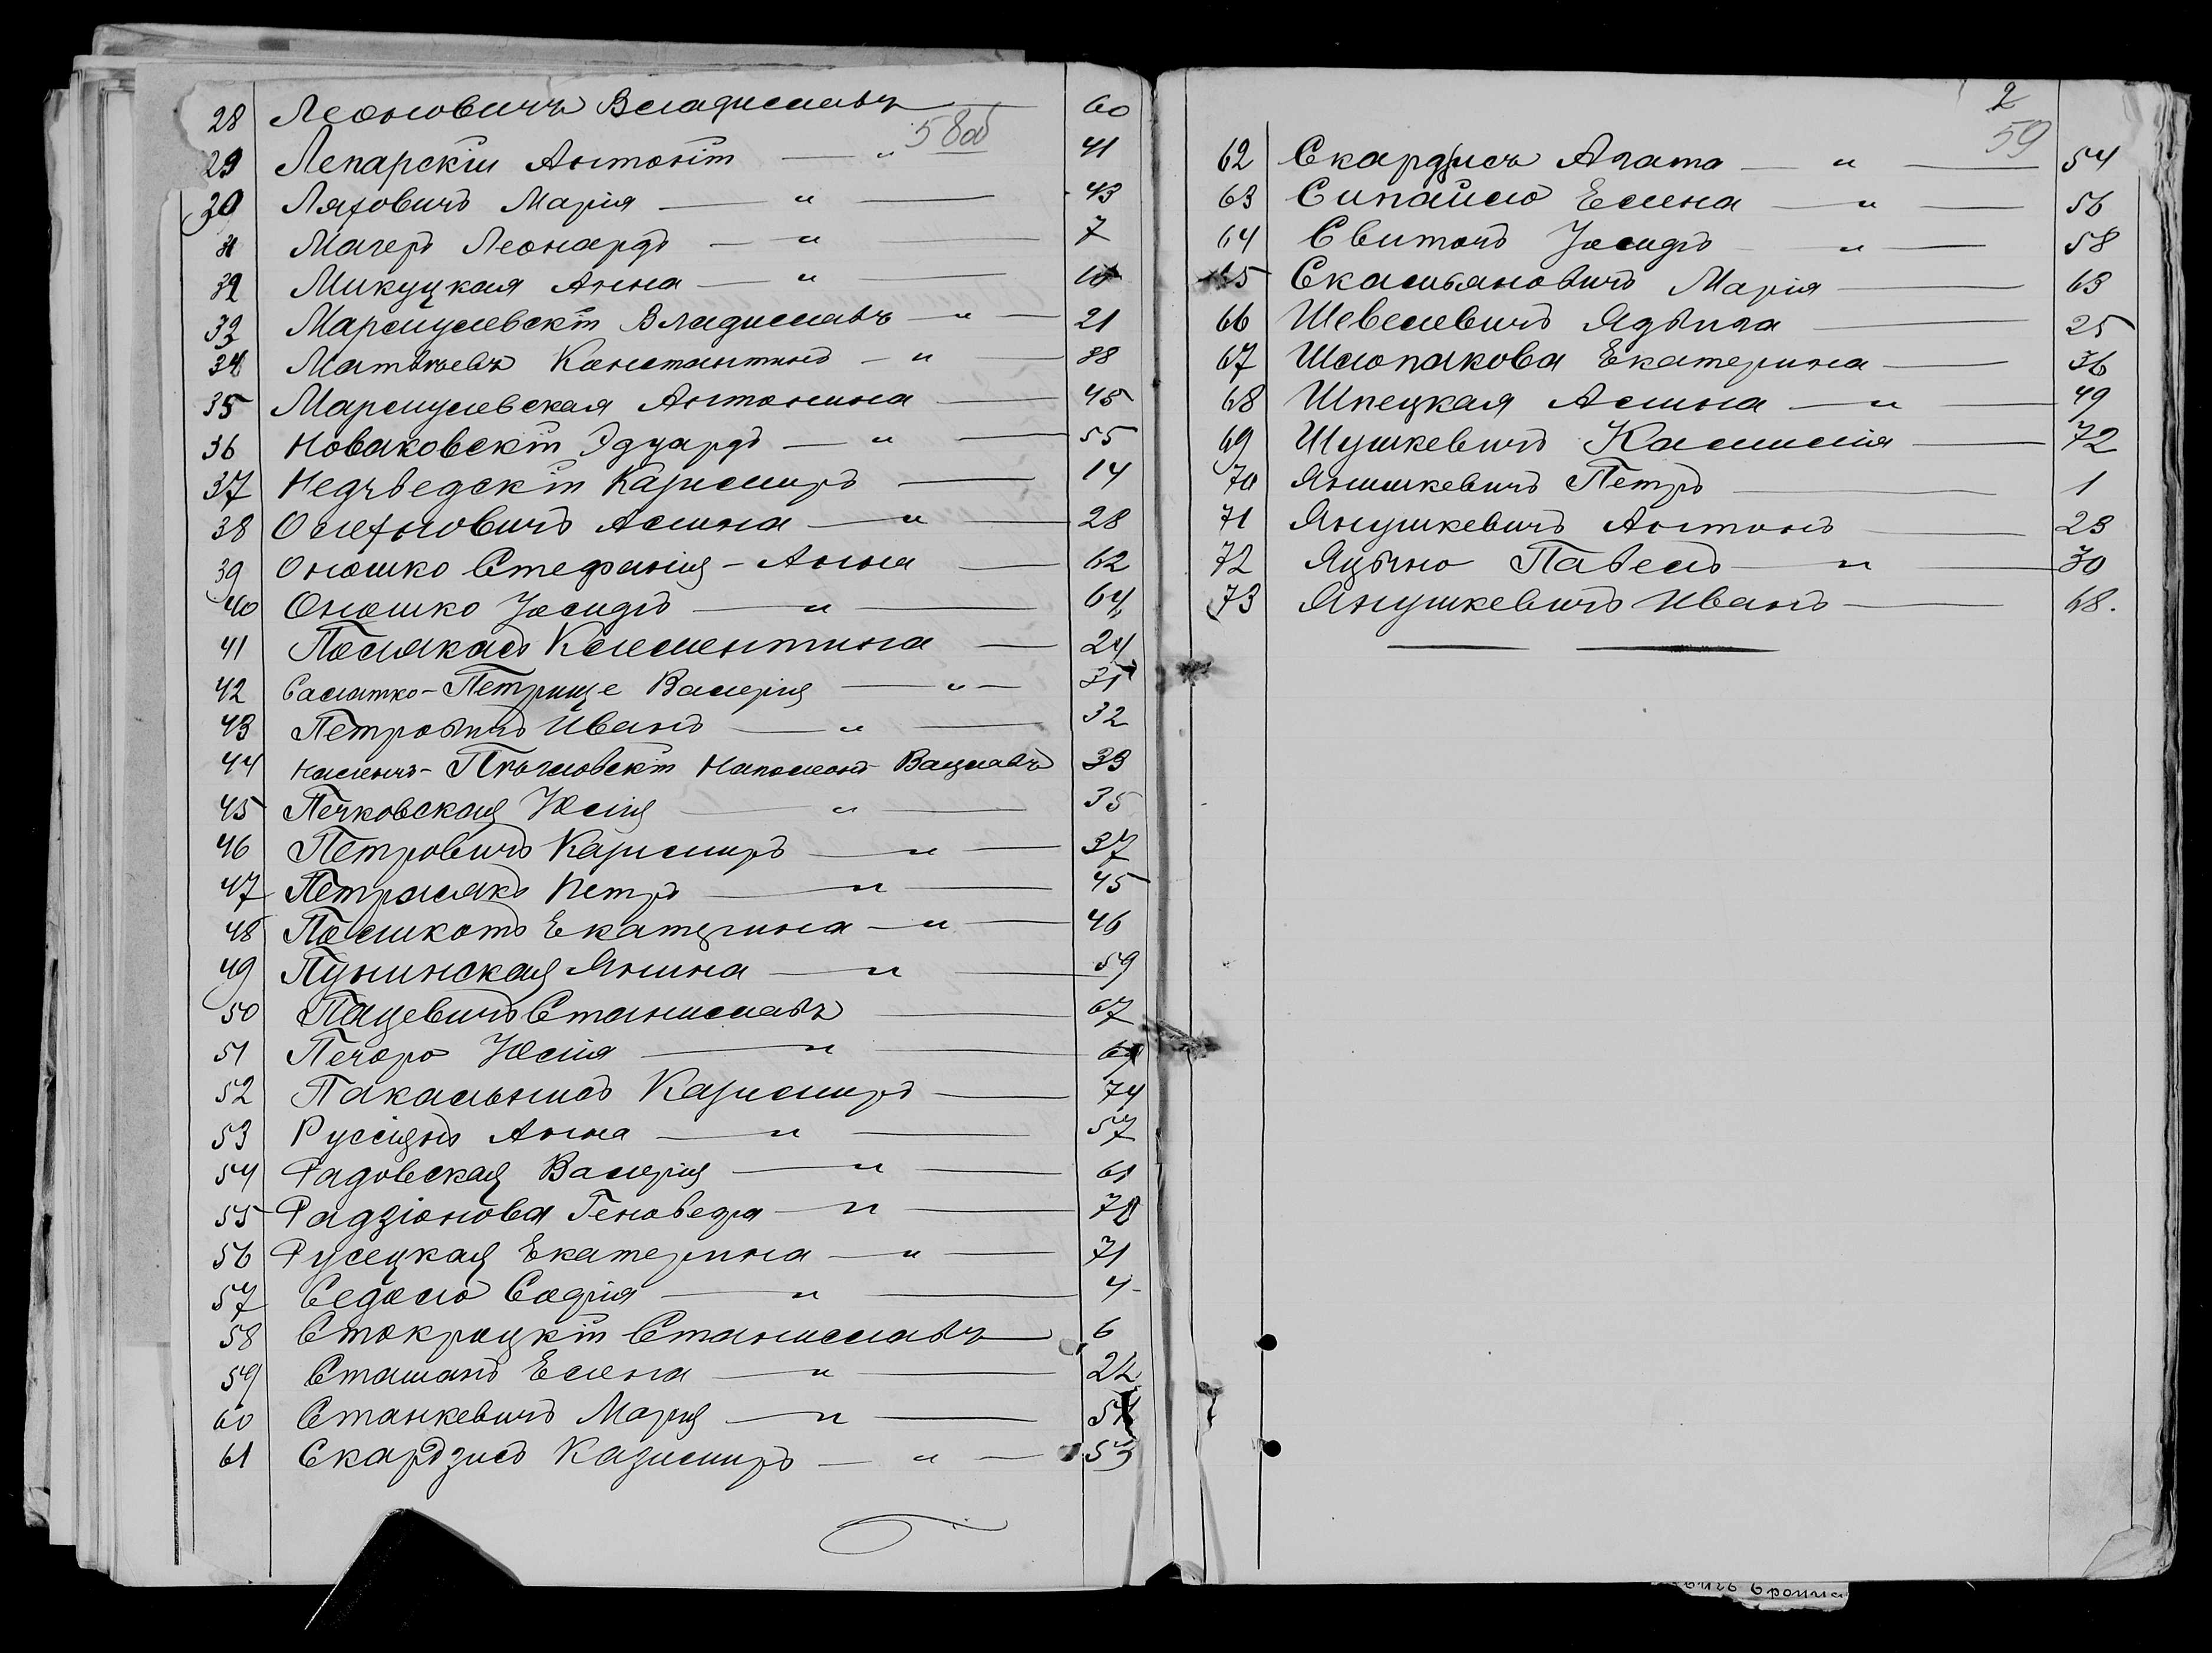 28 Леоновичъ Владиславъ — 60
58об
29 Лепарскій Антоній — „ — 41
30 Ляховичъ Марія — „ — 43
31 Магеръ Леонардъ — „ — 7
32 Микуцкая Анна — „ — 10
33 Марцулевскій Владиславъ — „ — 21
34 Матвѣевъ Константинъ — „ — 38
35 Марцулевская Антонина — 48
36 Новаковскій Эдуардъ — „ — 55
37 Недзведскій Казимиръ — 14
38 Олехновичъ Алина — „ — 28
39 Оношко Стефанія-Анна — 62
40 Оношко Іосифъ — „ — 64
41 Полякасъ Клементина — 24
42 Салатко-Петрище Валерія — „ — 31
43 Петровичъ Иванъ — „ — 32
44 Наленчъ- Наполеонъ Вацлавъ 33
45 Печковская Юлія — „ — 35
46 Петровичъ Казимиръ — „ — 37
47 Петрулякъ Петръ — „ — 45
48 Поликотъ Екатерина — „ — 46
49 Пунинская Янина — „ — 59
50 Пацевичъ Станиславъ — 67
51 Печоро Юлія — „ — 69
52 Пакальнисъ Казимиръ — 74
53 Руссіянъ Анна — „ — 57
54 Радовская Валерія — „ — 61
55 Радзіонова Геновефа — „ — 70
56 Русецкая Екатерина — „ — 71
57 Седоло Софія — „ — 4
58 Стокроцкій Станиславъ — 6
59 Сташанъ Елена — „ — 22
60 Станкевичъ Марія — „ — 51
61 Скардзисъ Казимиръ — „ — 53
2
59
62 Скардзисъ Агата — „ — 54
63 Сипайло Елена — „ — 56
64 Свиточъ Іосифъ — „ — 58
65 Скальяновичъ Марія — 63
66 Шевелевичъ Ядвига — 25
67 Шлопакова Екатерина — 36
68 Шпецкая Алина — „ — 49
69 Шушкевичъ Камилія — 72
70 Янишкевичъ Петръ — 1
71 Янушкевичъ Антонъ — 23
72 Яцыно Павелъ — „ — 30
73 Янушкевичъ Иванъ — 68.